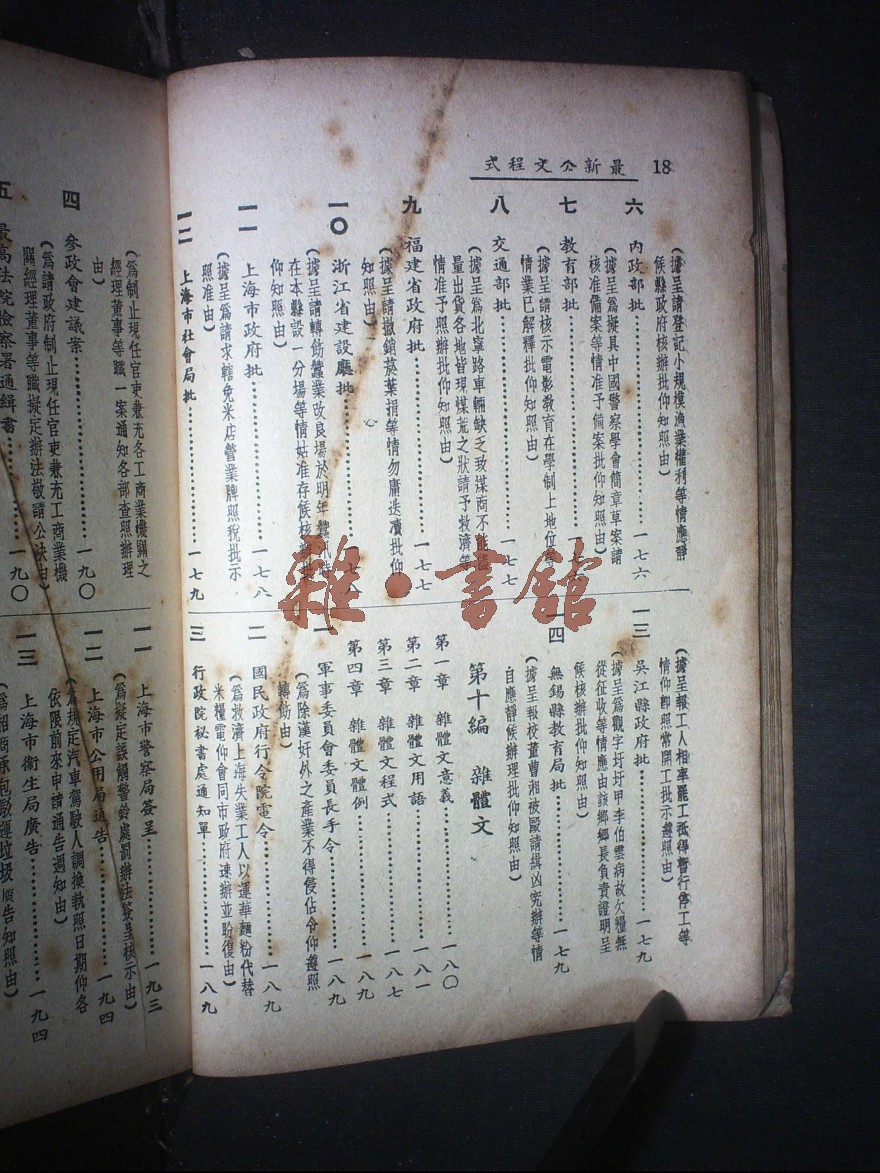 18
最新公文程式
（據呈請登記小規模漁業權利等情應靜
候縣政府核辦批仰知照由）
六 內政部批……一七六
（據呈爲擬具中國警察學會簡章草案請
核准備案等情准予備案批仰知照由）
七 教育部批……一七
（據呈請核示電影教育在學制上地位等
情業已解釋批仰知照由）
八 交通部批……一七七
（據呈爲北寧路車輛缺乏致煤商不能儘
量出貨各地皆現煤荒之狀請予救濟等
情准予照辦批仰知照由）
九 福建省政府批……一七七
（據呈請撤銷菸葉捐等情勿庸迭瀆批仰
知照由）
一〇 浙江省建設廳批……一七八
（據呈請轉飭蠶業改良場於明年蠶汛
在本縣設一分場等情姑准存候核
仰知照由）
一一 上海市政府批……一七八
（據呈爲請求轄免米店營業牌照稅批示
照准由）
一二 上海市社會局批……一七九
（據呈報工人相率罷工祇得暫行停工等
情仰即照常開工批示遵照由）
一三 吳江縣政府批……一七九
（據呈爲觀字圩圩甲李伯雲病故欠糧無
從征收等情應由該鄉鄉長負責證明呈
候核辦批仰知照由）
一四 無錫縣教育局批……一七九
（據呈報校董曹湘被毆請緝凶究辦等情
自應靜候辦理批仰知照由）
第十編 雜體文
第一章 雜體文意義……一八〇
第二章 雜體文用語……一八一
第三章 雜體文程式……一八七
第四章 雜體文體例……一八九
一 軍事委員會委員長手令……一八九
（爲除漢奸外之產業不得侵佔令仰遵照
轉飭由）
二 國民政府行令院電令……一八九
（爲救濟上海失業工人以運華麵粉代替
米糧電仰會同市政府速辦並盼復由）
三 行政院秘書處通知單……一八九
（爲制止現任官吏兼充各工商業機關之
經理董事等職一案通知各部查照辦理
由）
四 參政會建議案……一九〇
（爲請政府制止現任官吏兼充工商業機
關經理董事等職擬定辦法敬請公決由）
五 最高法院檢察署通緝書……一九〇
一一 上海市警察局簽呈……一九三
（爲擬定誤觸警鈴處罰辦法簽呈核示由）
一二 上海市公用局通告……一九四
（爲規定汽車駕駛人調換執照日期仰各
依限前來申請通告週知由）
一三 上海市衞生局廣告……一九四
（爲招商承包駁運垃圾廣告知照由）
雜·書館